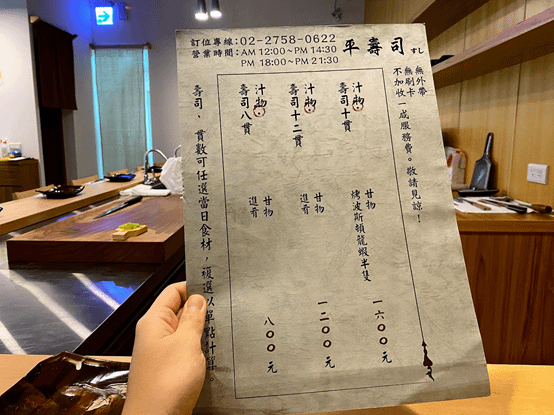 訂位專線：02-2758-0622
營業時間：AM 12:00~PM 14:30
PM 18:00~PM 21:30
平壽司 すし
無外帶
無刷卡
不加收一成服務費。敬請見諒！
汁物
壽司十貫
甘物
烤波斯頓龍蝦半隻
一六〇〇元
汁物
壽司十二貫
甘物
進肴
一二〇〇元
汁物
壽司八貫
甘物
進肴
八〇〇元
壽司、貫數可任選當日食材，複選以單點計算。